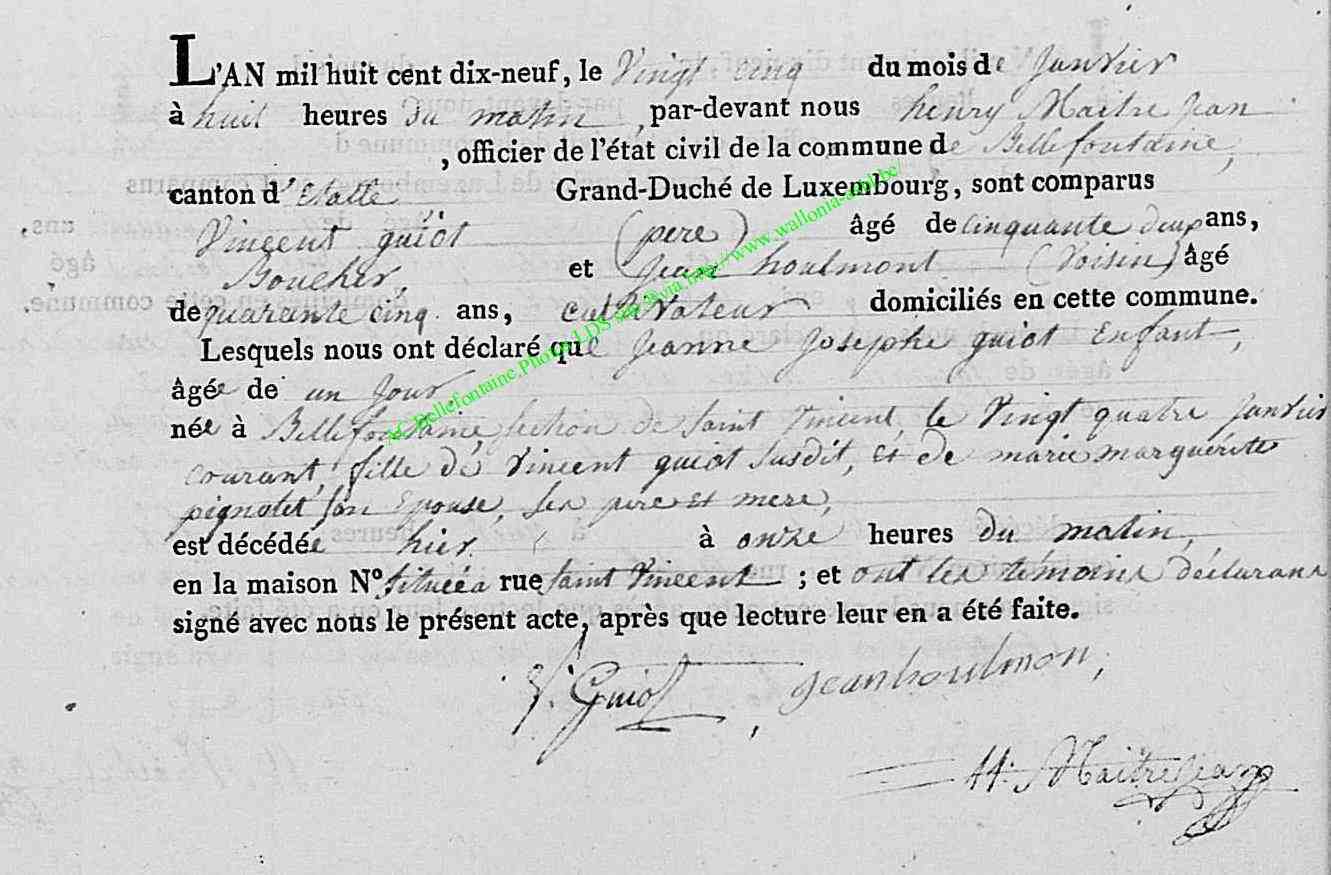 L'AN mil huit cent dix-neuf, le Vingt cinq du mois de Janvier
à huit heures du matin, par-devant nous henry Maitre Jean
, officier de l'état civil de la commune de Bellefontaine,
canton d'Etalle Grand-Duché de Luxembourg, sont comparus
Vincent guiot (pere) âgé de cinquante deux ans,
Boucher, et Jean houlmont (Voisin) âgé
de quarante cinq ans, cultivateur domiciliés en cette commune.
Lesquels nous ont déclaré que Jeanne Josephe guiot Enfant,
âgée de un Jour,
née à Bellefontaine, section de Saint Vincent, le Vingt quatre Janvier
courant, fille de Vincent guiot susdit, et de marie marguerite
pignolet son Epouse, ses pere et mere,
est décédée hier à onze heures du matin,
en la maison N° située a rue Saint Vincent ; et ont les témoins déclarans
signé avec nous le présent acte, après que lecture leur en a été faite.
V. Guiot, jean houlmon,
H. Maitrejean